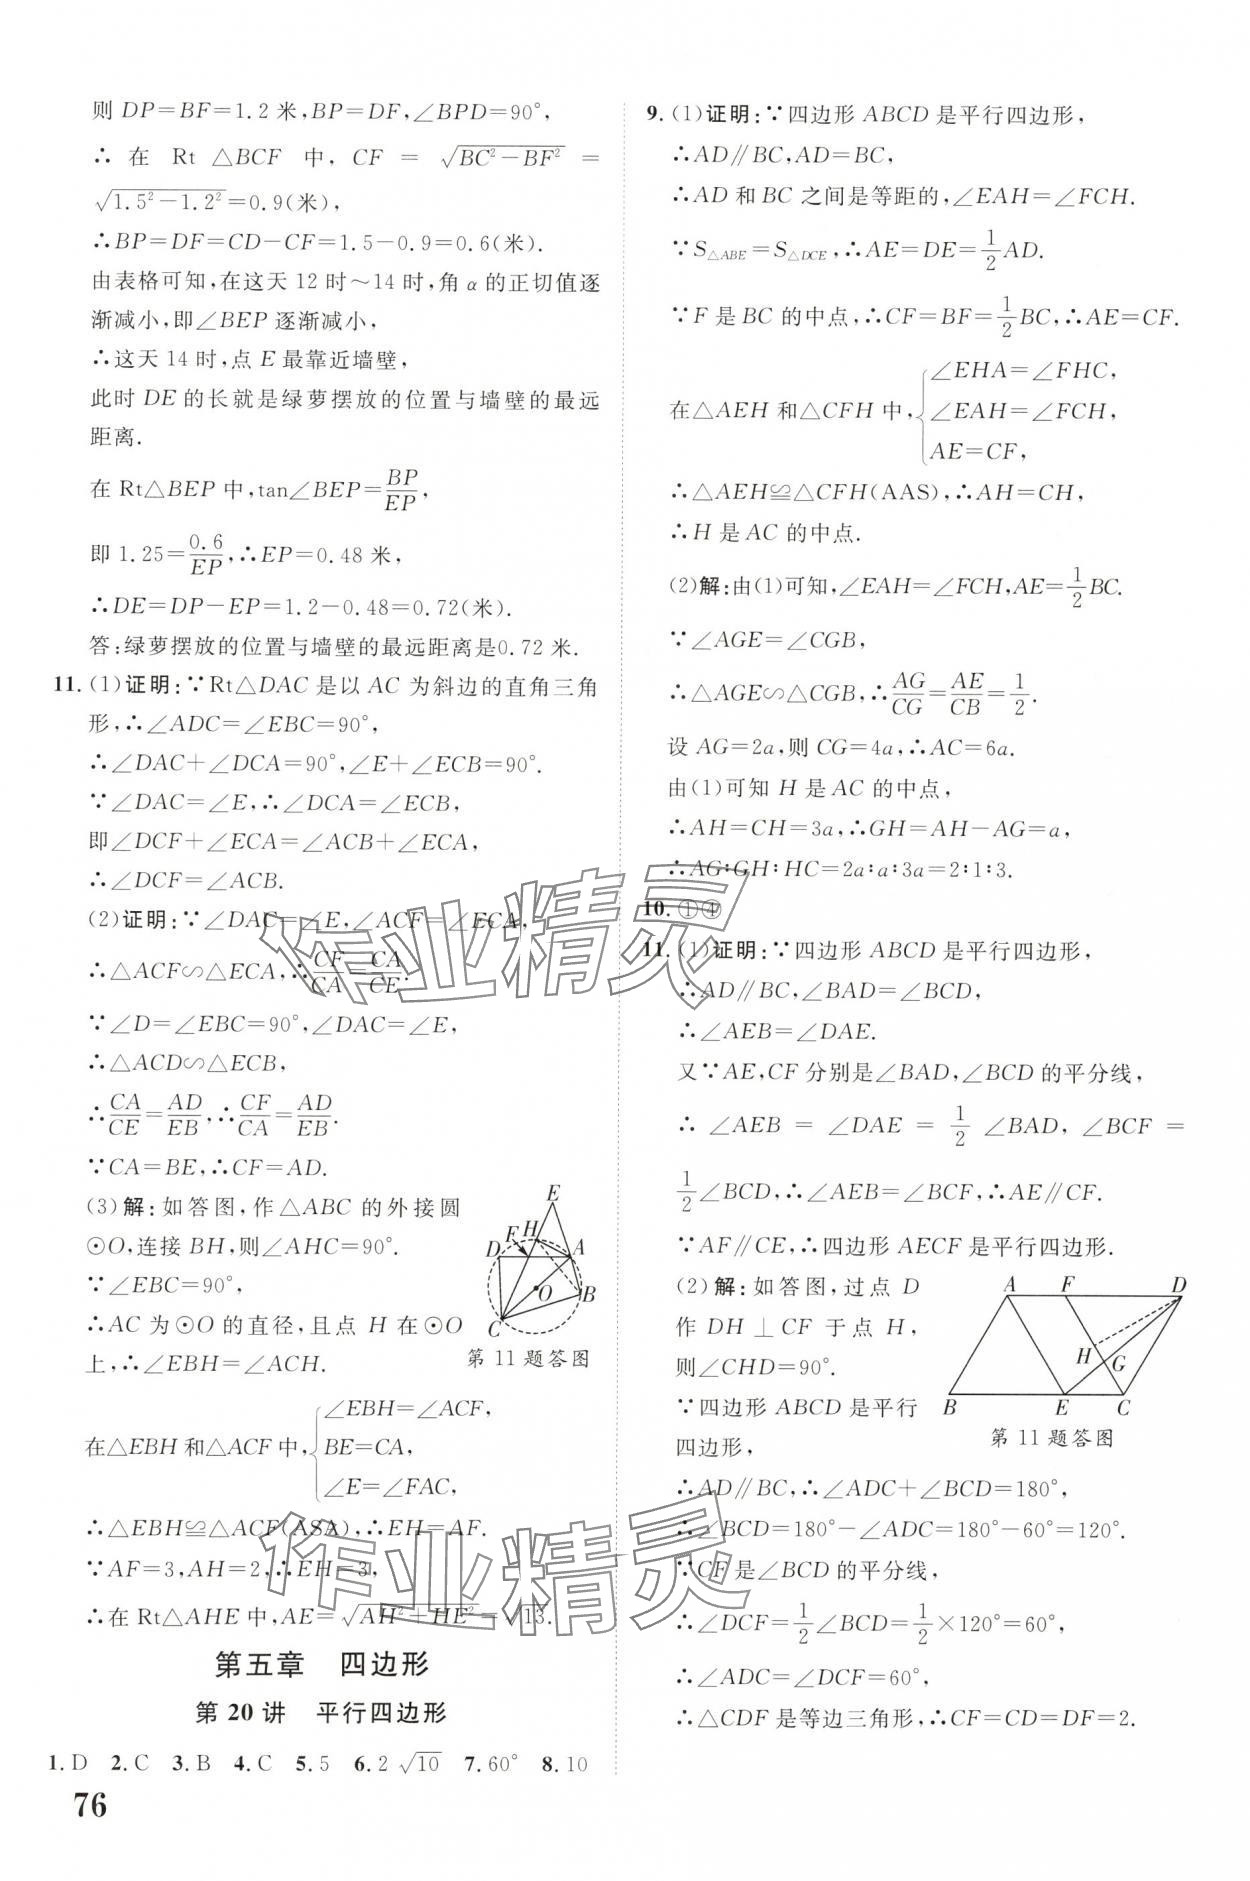 则 DP=BF=1.2 米,BP=DF,∠BPD=90°,
∴ 在 Rt △BCF 中, CF = √(BC²-BF²) =
√(1.5²-1.2²)=0.9(米),
∴BP=DF=CD-CF=1.5-0.9=0.6(米).
由表格可知,在这天 12 时~14 时,角 α 的正切值逐
渐减小,即∠BEP 逐渐减小,
∴这天 14 时,点 E 最靠近墙壁,
此时 DE 的长就是绿萝摆放的位置与墙壁的最远
距离.
在 Rt△BEP 中,tan∠BEP=BP/EP,
即 1.25=0.6/EP,∴EP=0.48 米,
∴DE=DP-EP=1.2-0.48=0.72(米).
答:绿萝摆放的位置与墙壁的最远距离是0.72 米.
11. (1)证明:∵Rt△DAC 是以 AC 为斜边的直角三角
形,∴∠ADC=∠EBC=90°,
∴∠DAC+∠DCA=90°,∠E+∠ECB=90°.
∵∠DAC=∠E,∴∠DCA=∠ECB,
即∠DCF+∠ECA=∠ACB+∠ECA,
∴∠DCF=∠ACB.
(2)证明:∵∠DAC=∠E,∠ACF=∠ECA,
∴△ACF∽△ECA,∴CF/CA=CA/CE.
∵∠D=∠EBC=90°,∠DAC=∠E,
∴△ACD∽△ECB,
∴CA/CE=AD/EB,∴CF/CA=AD/EB.
∵CA=BE,∴CF=AD.
(3)解:如答图,作△ABC 的外接圆
⊙O,连接 BH,则∠AHC=90°.
∵∠EBC=90°,
∴AC 为⊙O 的直径,且点 H 在⊙O
上,∴∠EBH=∠ACH.
E
F H
D A
O B
C
第 11 题答图
在△EBH 和△ACF 中,{∠EBH=∠ACF,
BE=CA,
∠E=∠FAC,
∴△EBH≌△ACF(ASA),∴EH=AF.
∵AF=3,AH=2,∴EH=3,
∴在 Rt△AHE 中,AE=√(AH²+HE²)=√13.
第五章 四边形
第 20 讲 平行四边形
1. D 2. C 3. B 4. C 5. 5 6. 2√10 7. 60° 8. 10
76
9. (1)证明:∵四边形 ABCD 是平行四边形,
∴AD∥BC,AD=BC,
∴AD 和 BC 之间是等距的,∠EAH=∠FCH.
∵S△ABE=S△DCE,∴AE=DE=1/2AD.
∵F 是 BC 的中点,∴CF=BF=1/2BC,∴AE=CF.
在△AEH 和△CFH 中,{∠EHA=∠FHC,
∠EAH=∠FCH,
AE=CF,
∴△AEH≌△CFH(AAS),∴AH=CH,
∴H 是 AC 的中点.
(2)解:由(1)可知,∠EAH=∠FCH,AE=1/2BC.
∵∠AGE=∠CGB,
∴△AGE∽△CGB,∴AG/CG=AE/CB=1/2.
设 AG=2a,则 CG=4a,∴AC=6a.
由(1)可知 H 是 AC 的中点,
∴AH=CH=3a,∴GH=AH-AG=a,
∴AG∶GH∶HC=2a∶a∶3a=2∶1∶3.
10. ①④
11. (1)证明:∵四边形 ABCD 是平行四边形,
∴AD∥BC,∠BAD=∠BCD,
∴∠AEB=∠DAE.
又∵AE,CF 分别是∠BAD,∠BCD 的平分线,
∴ ∠AEB = ∠DAE = 1/2 ∠BAD, ∠BCF =
1/2∠BCD,∴∠AEB=∠BCF,∴AE∥CF.
∵AF∥CE,∴四边形 AECF 是平行四边形.
(2)解:如答图,过点 D
作 DH ⊥ CF 于点 H,
则∠CHD=90°.
∵四边形 ABCD 是平行
四边形,
A F D
H G
B E C
第 11 题答图
∴AD∥BC,∴∠ADC+∠BCD=180°,
∴∠BCD=180°-∠ADC=180°-60°=120°.
∵CF 是∠BCD 的平分线,
∴∠DCF=1/2∠BCD=1/2×120°=60°,
∴∠ADC=∠DCF=60°,
∴△CDF 是等边三角形,∴CF=CD=DF=2.
作业精灵
作业精灵